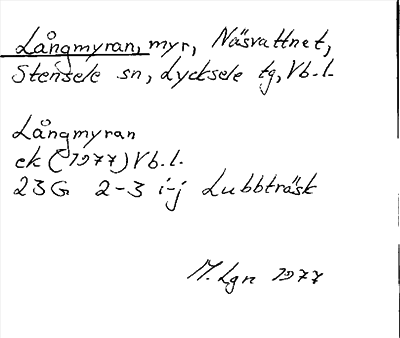 Långmyran, myr, Näsvattnet,
Stensele sn, Lycksele tg, Vb. l.
Långmyran
ek (1977) Vb. l.
23G 2-3 i-j Lubbträsk
M. Lgn 1977